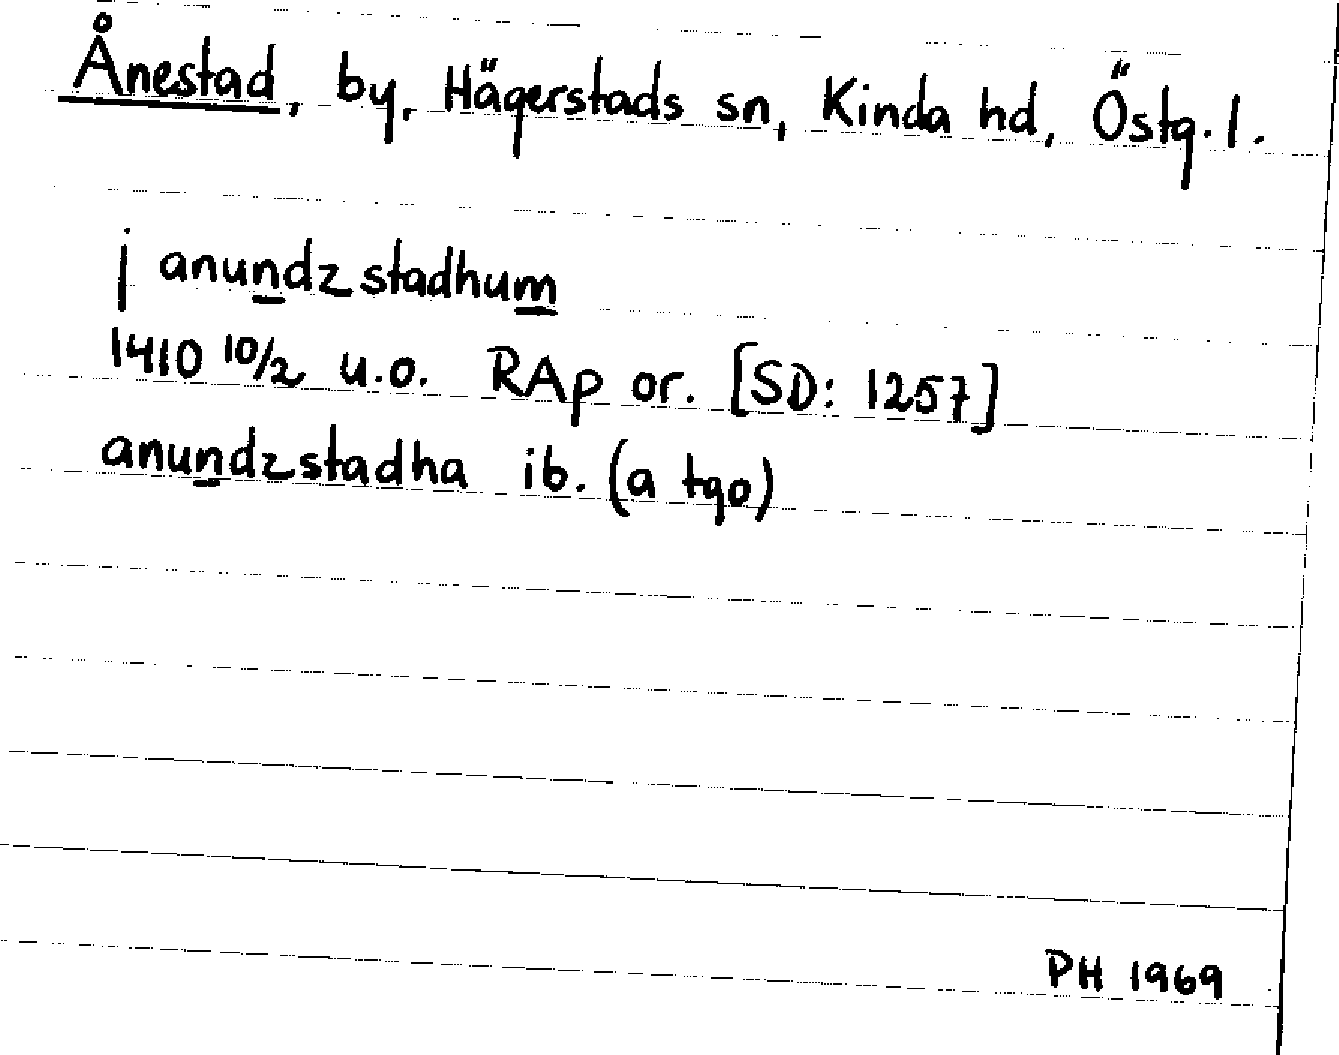 Ånestad, by, Hägerstads sn, Kinda hd, Östg. l.
j anundzstadhum
1410 10/2 u.o. RAp or. [SD: 1257]
anundzstadha ib. (a tgo)
PH 1969